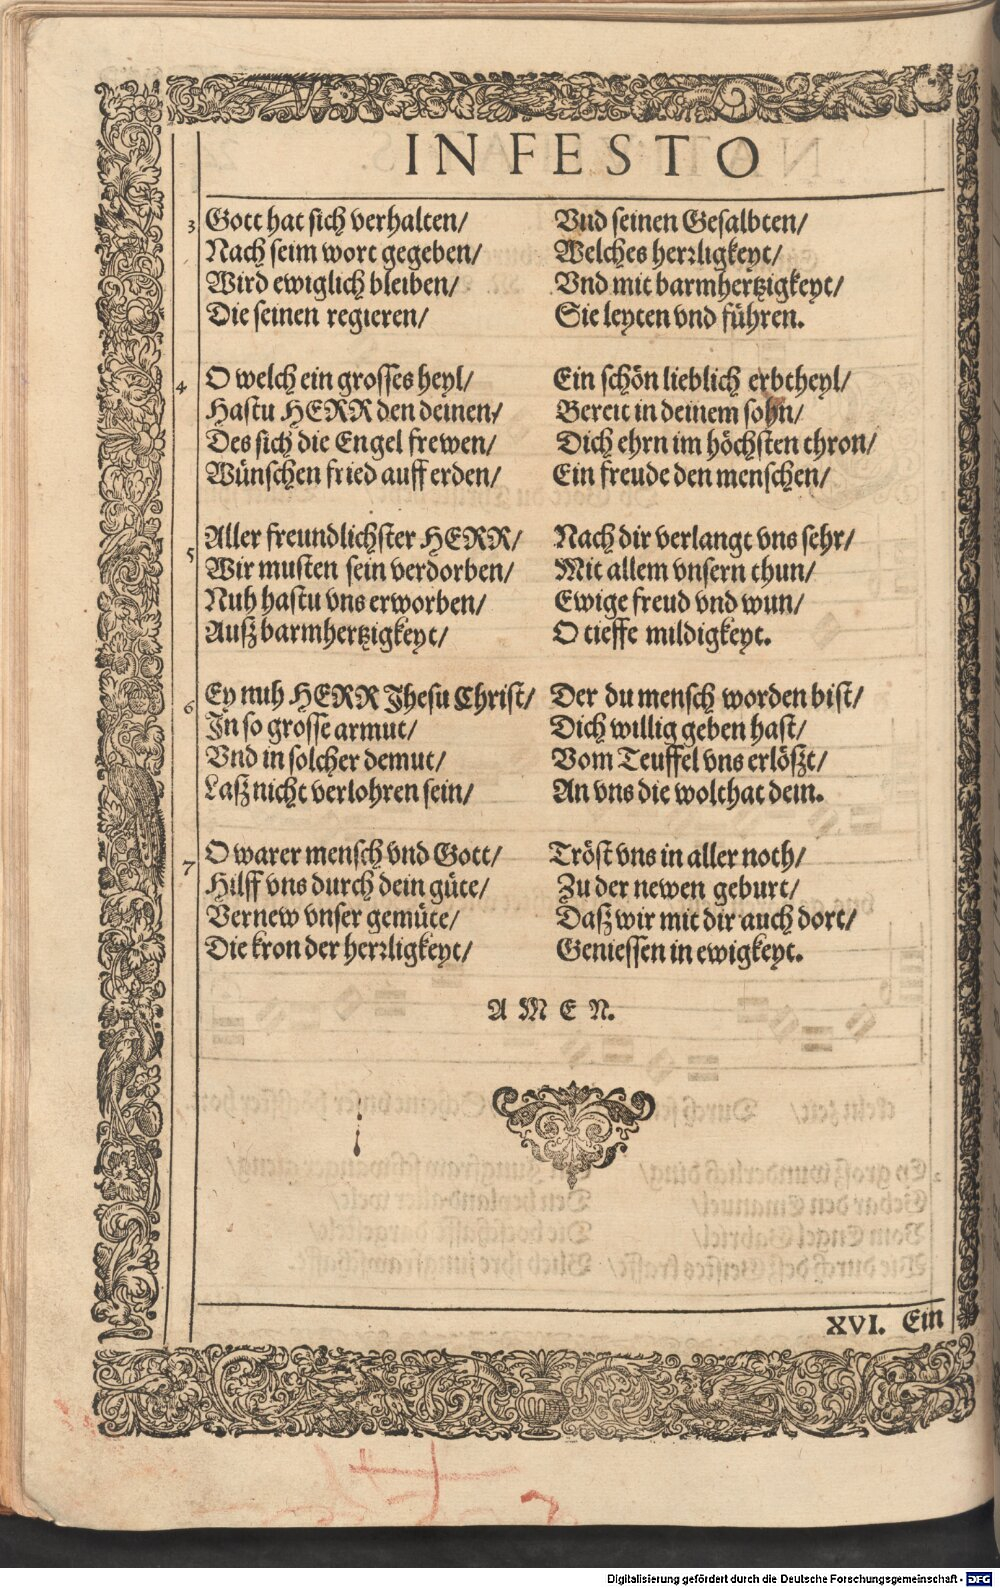 IN FESTO
3 Gott hat sich verhalten/ Vnd seinen Gesalbten/
Nach seim wort gegeben/ Welches herrligkeyt/
Wird ewiglich bleiben/ Vnd mit barmhertzigkeyt/
Die seinen regieren/ Sie leyten vnd führen.
4 O welch ein grosses heyl/ Ein schön lieblich erbtheyl/
Hastu HERR den deinen/ Bereit in deinem sohn/
Des sich die Engel frewen/ Dich ehrn im höchsten thron/
Wünschen fried auff erden/ Ein freude den menschen/
5 Aller freundlichster HERR/ Nach dir verlangt vns sehr/
Wir musten sein verdorben/ Mit allem vnsern thun/
Nuh hastu vns erworben/ Ewige freud vnd wun/
Außz barmhertzigkeyt/ O tieffe mildigkeyt.
6 Ey nuh HERR Jhesu Christ/ Der du mensch worden bist/
In so grosse armut/ Dich willig geben hast/
Vnd in solcher demut/ Vom Teuffel vns erlößzt/
Laßz nicht verlohren sein/ An vns die wolthat dein.
7 O warer mensch vnd Gott/ Tröst vns in aller noth/
Hilff vns durch dein güte/ Zu der newen geburt/
Vernew vnser gemüte/ Daßz wir mit dir auch dort/
Die kron der herrligkeyt/ Geniessen in ewigkeyt.
A M E N.
XVI. Ein
Digitalisierung gefördert durch die Deutsche Forschungsgemeinschaft - DFG